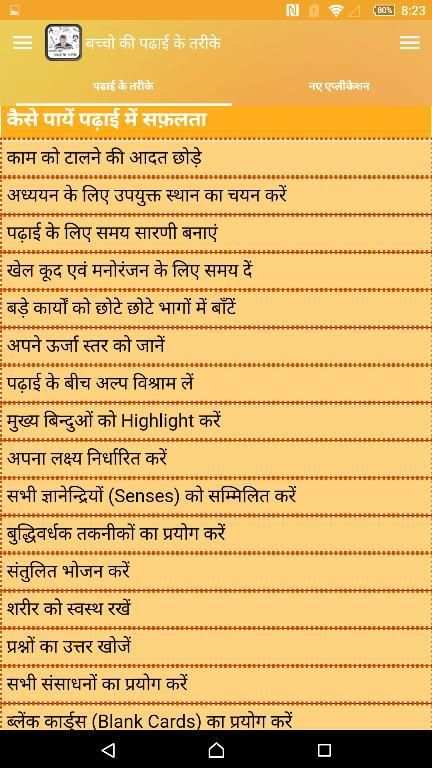 80% 8:23
बच्चो की पढाई के तरीके
पढाई के तरीके
नए एप्लीकेशन
कैसे पायें पढ़ाई में सफ़लता
काम को टालने की आदत छोड़े
अध्ययन के लिए उपयुक्त स्थान का चयन करें
पढ़ाई के लिए समय सारणी बनाएं
खेल कूद एवं मनोरंजन के लिए समय दें
बड़े कार्यों को छोटे छोटे भागों में बाँटें
अपने ऊर्जा स्तर को जानें
पढ़ाई के बीच अल्प विश्राम लें
मुख्य बिन्दुओं को Highlight करें
अपना लक्ष्य निर्धारित करें
सभी ज्ञानेन्द्रियों (Senses) को सम्मिलित करें
बुद्धिवर्धक तकनीकों का प्रयोग करें
संतुलित भोजन करें
शरीर को स्वस्थ रखें
प्रश्नों का उत्तर खोजें
सभी संसाधनों का प्रयोग करें
ब्लेंक कार्ड्स (Blank Cards) का प्रयोग करें